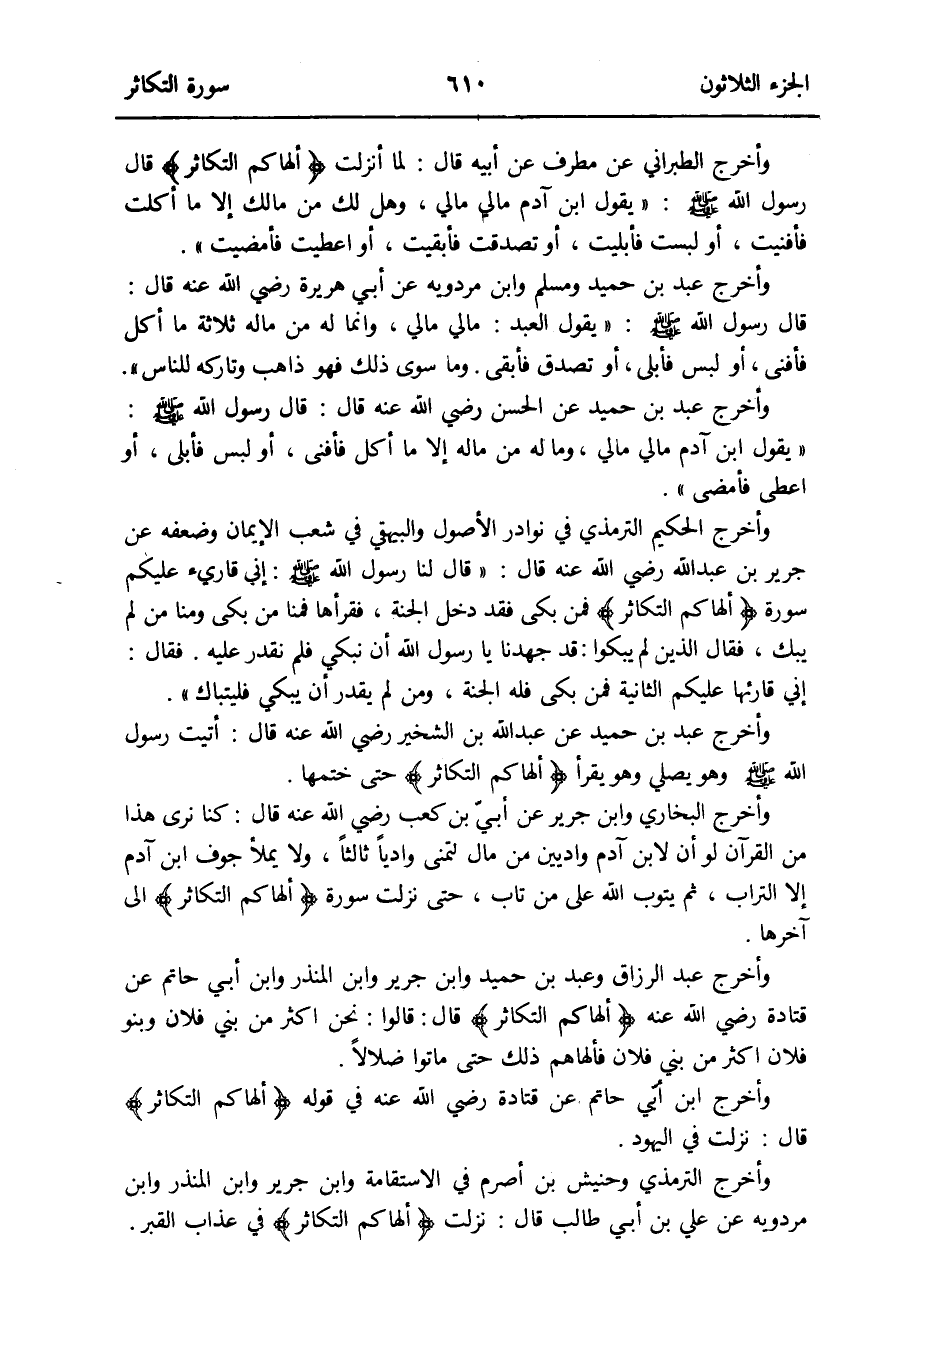 الجزء الثلاثون ٦١٠ سورة التكاثر
وأخرج الطبراني عن مطرف عن أبيه قال : لما أنزلت ﴿ ألهاكم التكاثر ﴾ قال
رسول الله ﷺ : « يقول ابن آدم مالي مالي ، وهل لك من مالك إلا ما أكلت
فأفنيت ، أو لبست فأبليت ، أو تصدقت فأبقيت ، أو اعطيت فأمضيت » .
وأخرج عبد بن حميد ومسلم وابن مردويه عن أبي هريرة رضي الله عنه قال :
قال رسول الله ﷺ : « يقول العبد : مالي مالي ، وانما له من ماله ثلاثة ما أكل
فأفنى ، أو لبس فأبلى ، أو تصدق فأبقى . وما سوى ذلك فهو ذاهب وتاركه للناس » .
وأخرج عبد بن حميد عن الحسن رضي الله عنه قال : قال رسول الله ﷺ :
« يقول ابن آدم مالي مالي ، وما له من ماله إلا ما أكل فأفنى ، أو لبس فأبلى ، أو
اعطى فأمضى » .
وأخرج الحكيم الترمذي في نوادر الأصول والبيهقي في شعب الإيمان وضعفه عن
جرير بن عبدالله رضي الله عنه قال : « قال لنا رسول الله ﷺ : إني قاريء عليكم
سورة ﴿ ألهاكم التكاثر ﴾ فمن بكى فقد دخل الجنة ، فقرأها فمنا من بكى ومنا من لم
يبك ، فقال الذين لم يبكوا : قد جهدنا يا رسول الله أن نبكي فلم نقدر عليه . فقال :
إني قارئها عليكم الثانية فمن بكى فله الجنة ، ومن لم يقدر أن يبكي فليتباك » .
وأخرج عبد بن حميد عن عبدالله بن الشخير رضي الله عنه قال : أتيت رسول
الله ﷺ وهو يصلي وهو يقرأ ﴿ ألهاكم التكاثر ﴾ حتى ختمها .
وأخرج البخاري وابن جرير عن أبيّ بن كعب رضي الله عنه قال : كنا نرى هذا
من القرآن لو أن لابن آدم واديين من مال لتمنى وادياً ثالثاً ، ولا يملأ جوف ابن آدم
إلا التراب ، ثم يتوب الله على من تاب ، حتى نزلت سورة ﴿ ألهاكم التكاثر ﴾ الى
آخرها .
وأخرج عبد الرزاق وعبد بن حميد وابن جرير وابن المنذر وابن أبي حاتم عن
قتادة رضي الله عنه ﴿ ألهاكم التكاثر ﴾ قال : قالوا : نحن اكثر من بني فلان وبنو
فلان اكثر من بني فلان فألهاهم ذلك حتى ماتوا ضلالاً .
وأخرج ابن أبي حاتم عن قتادة رضي الله عنه في قوله ﴿ ألهاكم التكاثر ﴾
قال : نزلت في اليهود .
وأخرج الترمذي وحنيش بن أصرم في الاستقامة وابن جرير وابن المنذر وابن
مردويه عن علي بن أبي طالب قال : نزلت ﴿ ألهاكم التكاثر ﴾ في عذاب القبر .